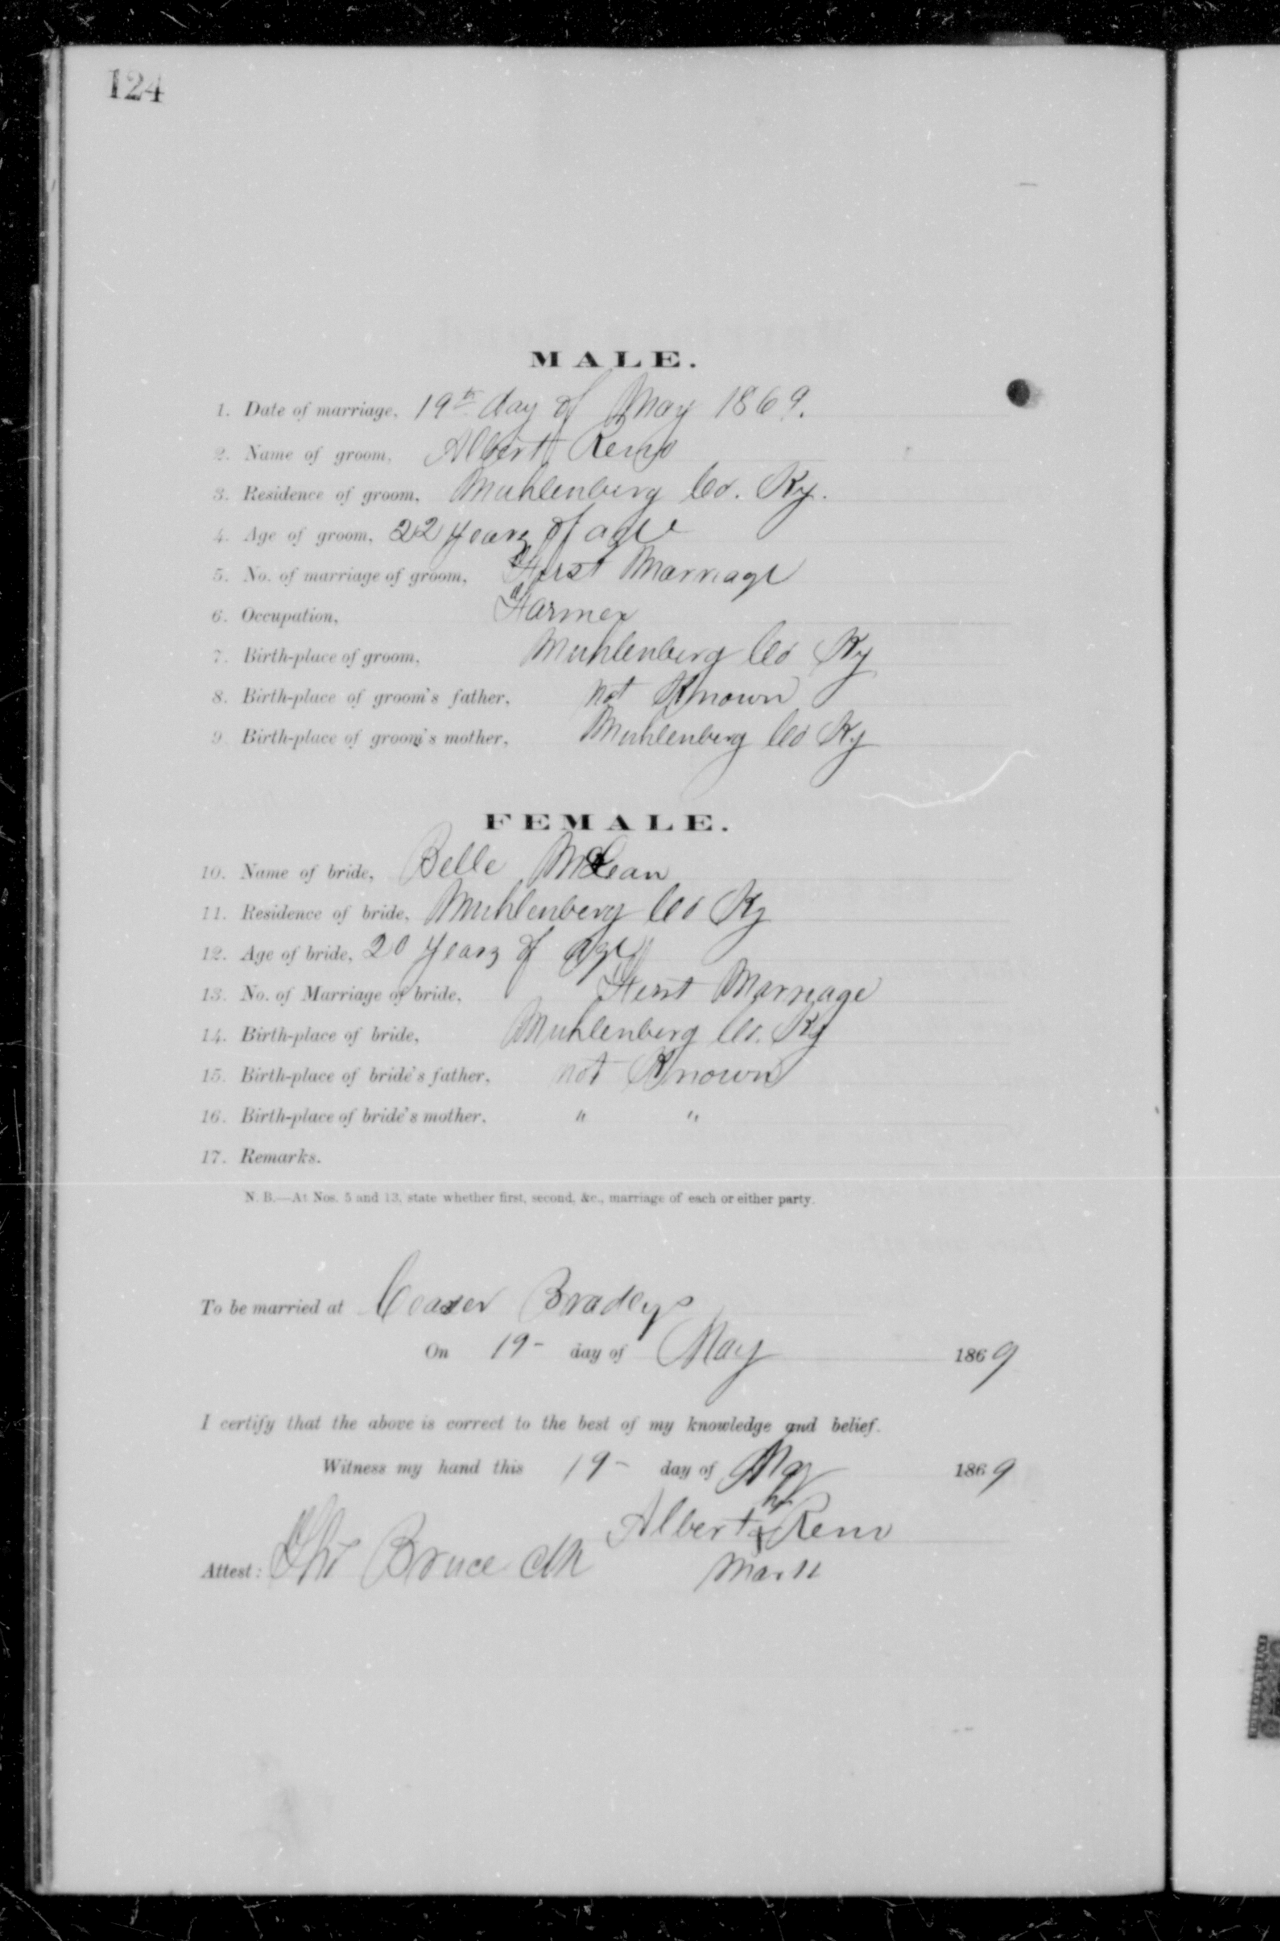 124
MALE.
1. Date of marriage, 19th day of May 1869.
2. Name of groom, Albert Reno
3. Residence of groom, Muhlenberg Co. Ky.
4. Age of groom, 22 years of age
5. No. of marriage of groom, First Marriage
6. Occupation, Farmer
7. Birth-place of groom, Muhlenberg Co Ky
8. Birth-place of groom's father, not Known
9 Birth-place of groom's mother, Muhlenberg Co Ky
FEMALE.
10. Name of bride, Belle McLean
11. Residence of bride, Muhlenberg Co Ky
12. Age of bride, 20 years of age
13. No. of Marriage of bride, First Marriage
14. Birth-place of bride, Muhlenberg Co. Ky
15. Birth-place of bride's father, not Known
16. Birth-place of bride's mother, " "
17. Remarks.
N. B.—At Nos. 5 and 13, state whether first, second, &c., marriage of each or either party.
To be married at Ceaser Bradleys
On 19- day of May 1869
I certify that the above is correct to the best of my knowledge and belief.
Witness my hand this 19- day of May 1869
his
Albert x Reno
Attest: Bruce Clk mark